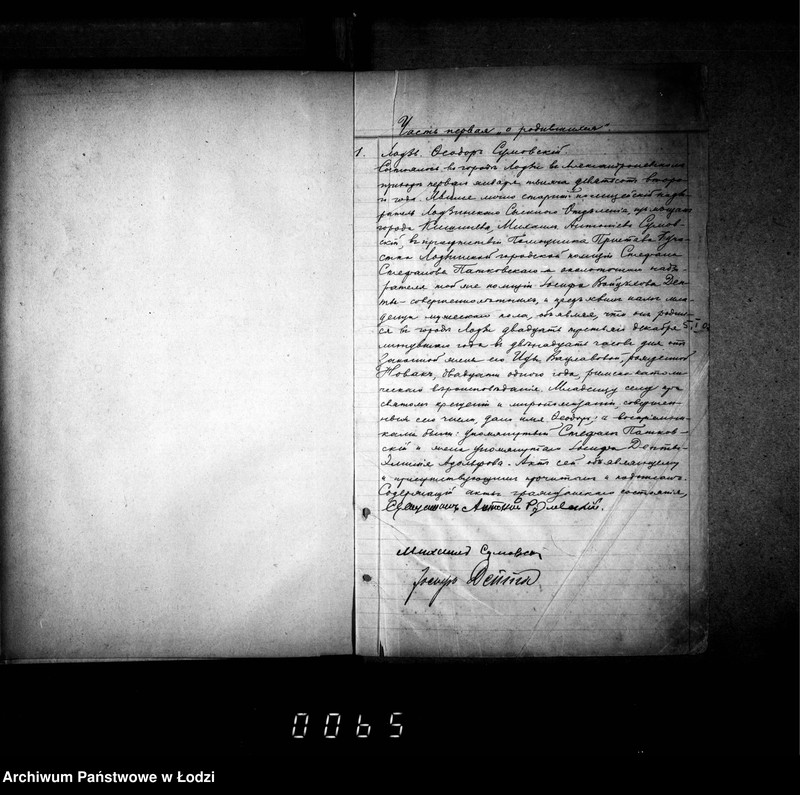 Часть первая „о родившихся“.
1. Лодзь. Ѳеодоръ Сумовскій.
Состоялось въ городѣ Лодзи въ Александроневскомъ
приходѣ перваго января, тысяча девятьсотъ второ-
го года. Явился лично старшій полицейскій надзи-
ратель Лодзинскаго Сыскного Отдѣленія,
города Кишинева, Михаилъ Антоніевъ Сумов-
скій, въ присутствіи Помощника Пристава
стка Лодзинской городской полиціи Стефана
Стефанова Патковскаго и околоточнаго надзи-
рателя той же полиціи Іосифа Депты-
ты совершеннолѣтнихъ, и предъявилъ намъ мла-
денца мужескаго пола, объявляя, что онъ родил-
ся въ городѣ Лодзи двадцать третьяго декабря
минувшаго года въ двѣнадцать часовъ дня отъ
Законной жены его Иды Вацлавовой, рожденной
Новакъ, двадцати одного года, римско-католи-
ческаго вѣроисповѣданія. Младенцу сему при
святомъ крещеніи и миропомазаніи, совершен-
ныхъ сего числа, дано имя Ѳеодоръ; а воспріемни-
ками были: упомянутый Стефанъ Патков-
скій и жена упомянутаго Іосифа Депты-
Эмилія Адольфова. Актъ сей объявляющему
и присутствующимъ прочитанъ и подписанъ.
Содержащій акты гражданскаго состоянія,
Священникъ Антоній Рудлевскій.
Михаилъ Сумовскій
Іосифъ Депта
0065
Archiwum Państwowe w Łodzi